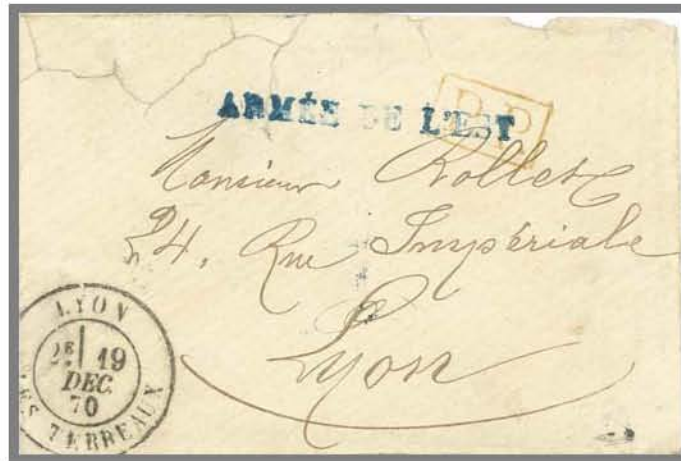 ARMÉE DE L'EST
P.P
Monsieur Rollet
24, Rue Impériale
Lyon
LYON
2E 19
DEC.
70
LES TERREAUX